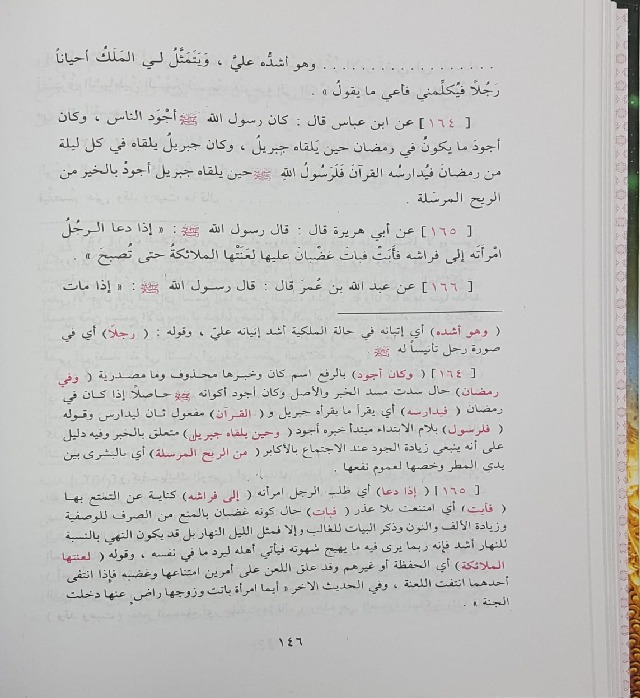 . . . . . . . . . . . . . . . . . . وهو أشدُّه عليَّ ، وَيَتَمَثَّلُ لـي المَلَكُ أحياناً
رَجُلًا فَيُكلِّمني فأعي ما يقولُ » .
[ ١٦٤ ] عن ابن عباس قال : كان رسول الله ﷺ أجْوَد الناس ، وكان
أجودَ ما يكونُ في رمضان حين يَلقاه جبريلُ ، وكان جبريلُ يلقاه في كل ليلة
من رمضان فيُدارسُه القرآنَ فَلَرَسُولُ اللهِ ﷺ حين يلقاه جبريل أجودُ بالخير من
الريح المرسَلة .
[ ١٦٥ ] عن أبي هريرة قال : قال رسول الله ﷺ : « إذا دعا الـرجُلُ
امْرأتَه إلى فراشه فأبَتْ فباتَ غَضْبانَ عليها لعَنَتْها الملائكةُ حتى تُصبحَ » .
[ ١٦٦ ] عن عبد الله بن عُمرَ قال : قال رسـول الله ﷺ : « إذا مات
( وهو أشده ) أي إتيانه في حالة الملكية أشد إتيانه عليّ ، وقوله : ( رجلاً ) أي في
صورة رجل تأنيساً له ﷺ .
[ ١٦٤ ] ( وكان أجود ) بالرفع اسم كان وخبرها محذوف وما مصدرية ( وفي
رمضان ) حال سدت مسد الخبر والأصل وكان أجود أكوانه ﷺ حاصلاً إذا كان في
رمضان ( فيدارسه ) أي يقرأ ما يقرأه جبريل و ( القرآن ) مفعول ثـان ليدارس وقـوله
( فلرسول ) بلام الابتداء مبتدأ خبره أجود ( وحين يلقاه جبريل ) متعلق بالخبر وفيه دليل
على أنه ينبغي زيادة الجود عند الاجتماع بالأكابر ( من الريح المرسلة ) أي بالبشرى بين
يدي المطر وخصها لعموم نفعها .
[ ١٦٥ ] ( إذا دعا ) أي طلب الرجل امرأته ( إلى فراشه ) كناية عن التمتع بهـا
( فأبت ) أي امتنعت بلا عذر ( فبات ) حال كونه غضبان بالمنع من الصرف للوصفية
وزيادة الألف والنون وذكر البيات للغالب وإلا فمثل الليل النهار بل قد يكون النهي بالنسبة
للنهار أشد فإنه ربما يرى فيه ما يهيج شهوته فيأتي أهله ليرد ما في نفسه ، وقوله ( لعنتها
الملائكة ) أي الحفظة أو غيرهم وقد علق اللعن على أمرين امتناعها وغضبه فإذا انتفى
أحدهما انتفت اللعنة ، وفي الحديث الآخر « أيما امرأة باتت وزوجها راض عنها دخلت
الجنة » .
١٤٦